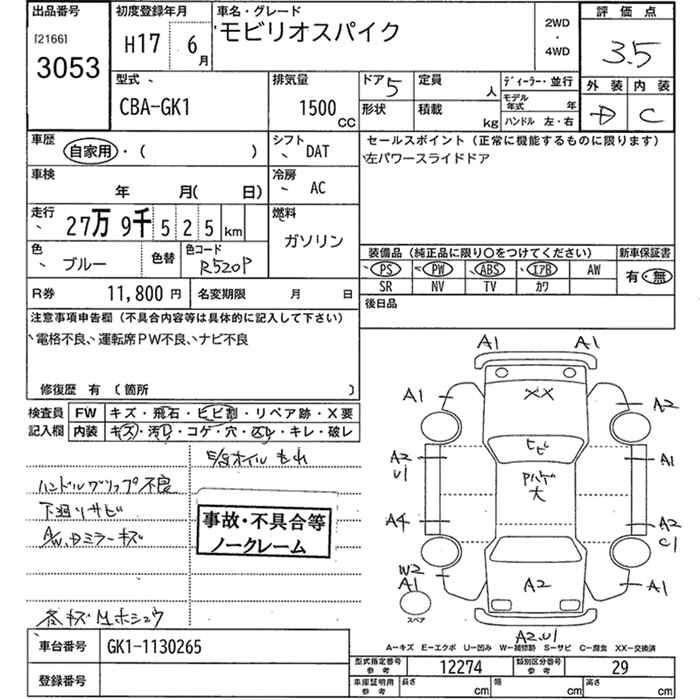 出品番号
[2166]
3053
初度登録年月
H17 6月
車名・グレード
モビリオスパイク
2WD
・
4WD
評価点
3.5
外装 内装
D C
型式
CBA-GK1
排気量
1500 CC
ドア 5
定員 人
ディーラー・並行
形状
積載 kg
モデル年式 年
ハンドル 左・右
車歴
自家用・( )
シフト
DAT
車検
年 月( 日)
冷房
AC
走行
27万9千525km
燃料
ガソリン
色
ブルー
色替
色コード
R520P
R券 11,800円
名変期限 月 日
セールスポイント(正常に機能するものに限ります)
左パワースライドドア
装備品(純正品に限り○をつけてください)
新車保証書
PS PW ABS エアB AW
有・無
SR NV TV カワ
後日品
注意事項申告欄(不具合内容等は具体的に記入して下さい)
電格不良、運転席PW不良、ナビ不良
修復歴 有 〔箇所 〕
検査員
記入欄
FW キズ・飛石・ヒビ割・リペア跡・X要
内装 キズ・汚レ・コゲ・穴・スレ・キレ・破レ
E/gオイルもれ
ハンドルグリップ不良
下廻りサビ
A/W、Dミラーキズ
事故・不具合等
ノークレーム
各キズMホシュウ
A1 A1
A1 XX A2
ヒビ
A2 A1
U1
Pハゲ
大
A4 A2
C1
W2
A1 A2 A1
スペア
A2.U1
A=キズ E=エクボ U=凹み W=補修跡 S=サビ C=腐食 XX=交換済
車台番号 GK1-1130265
登録番号
型式指定番号
参考
12274
類別区分番号
参考
29
車庫証明用
参考
長さ cm 幅 cm 高さ cm